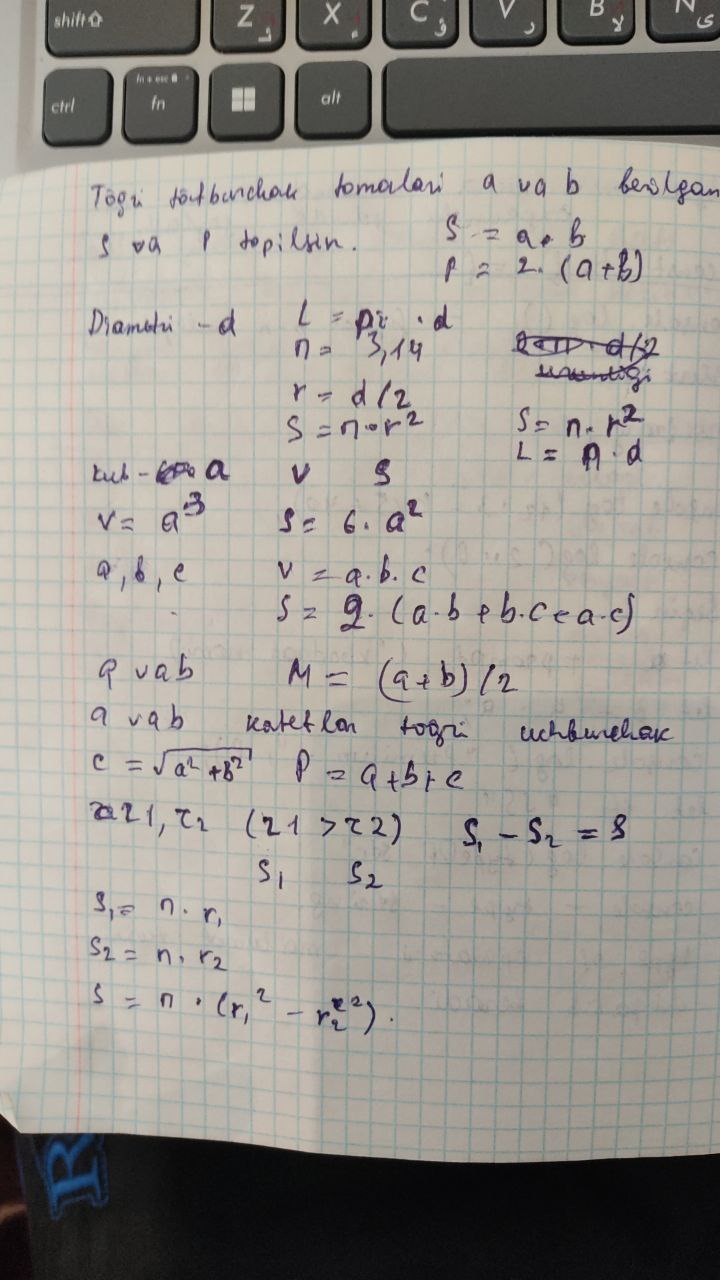 shift⇧ Z X C V B N
ctrl fn + esc fn alt
Togri tortburchak tomonlari a va b berilgan
S va P topilsin. S = a • b
P = 2 · (a+b)
Diametri - d L = pi · d
п = 3,14
r = d/2
S = п • r² S = п • r²
L = п · d
kub - a V S
V = a³ S = 6 · a²
a, b, c V = a·b·c
S = 2 · (a·b + b·c + a·c)
a va b M = (a+b)/2
a va b katetlar togri uchburchak
c = √a² + b² P = a+b+c
r1, r2 (r1 > r2) S₁ - S₂ = S
S₁ S₂
S₁ = п · r₁
S₂ = п · r₂
S = п · (r₁² - r₂²).
R